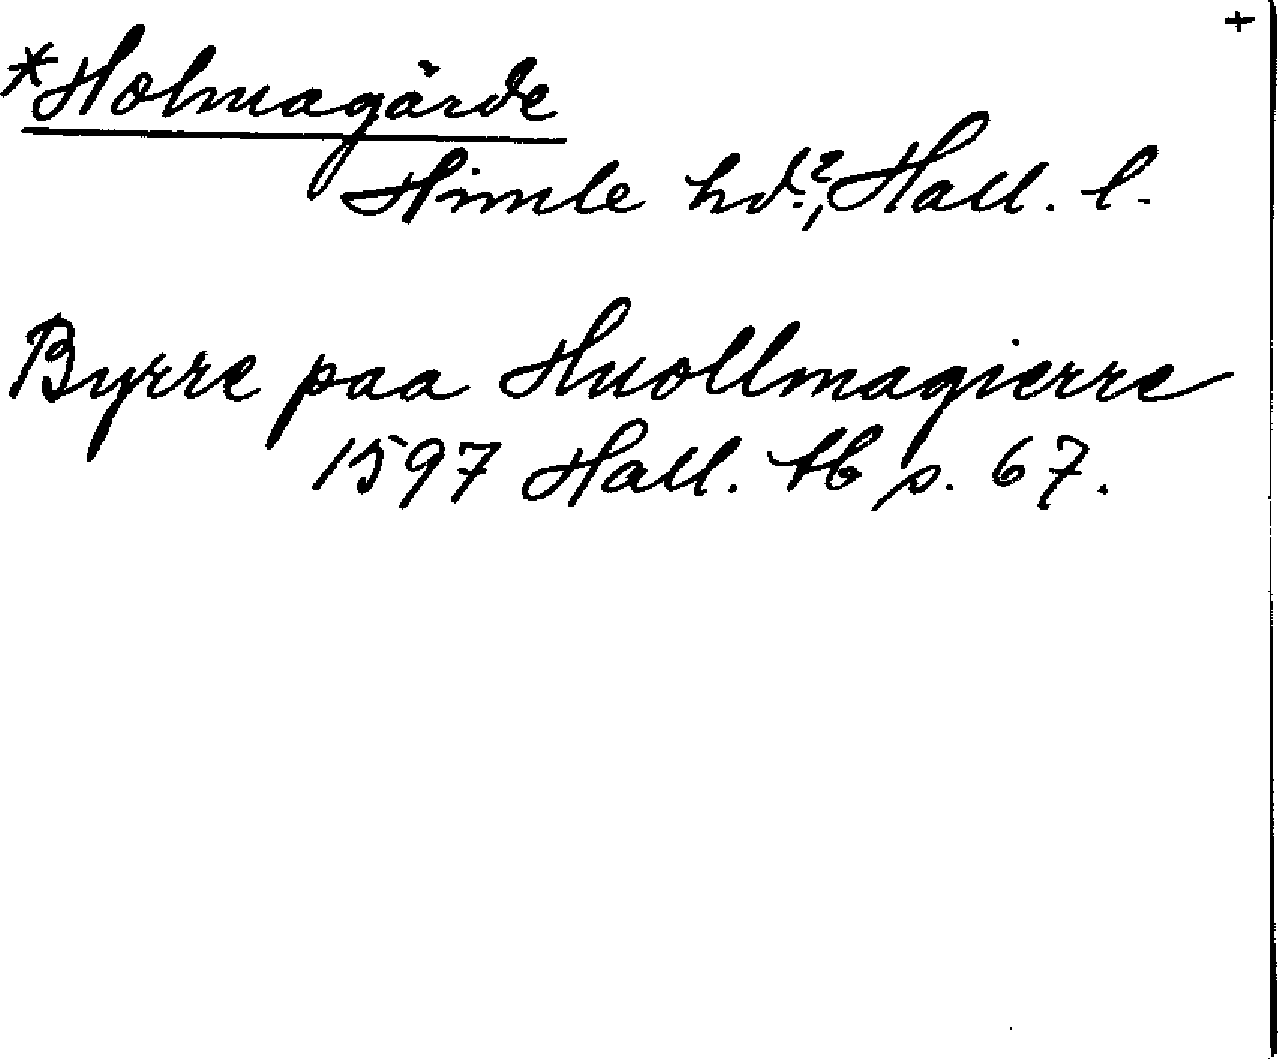 +
*Holmagärde
Himle hd.?, Hall. l.
Byrre paa Huollmagierre
1597 Hall. tb s. 67.